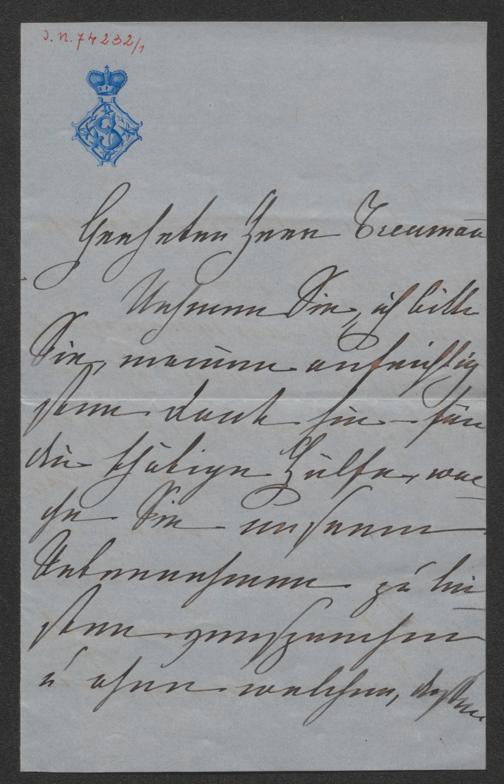 J.N. 74232/1
S
Geehrter Herr Treumann
Nehmen Sie, ich bitte
Sie, meinen aufrichtig
sten Dank hin für
die thätige Hülfe, wel
che Sie unserem
Unternehmen zu lei
sten
u ohne welchen,